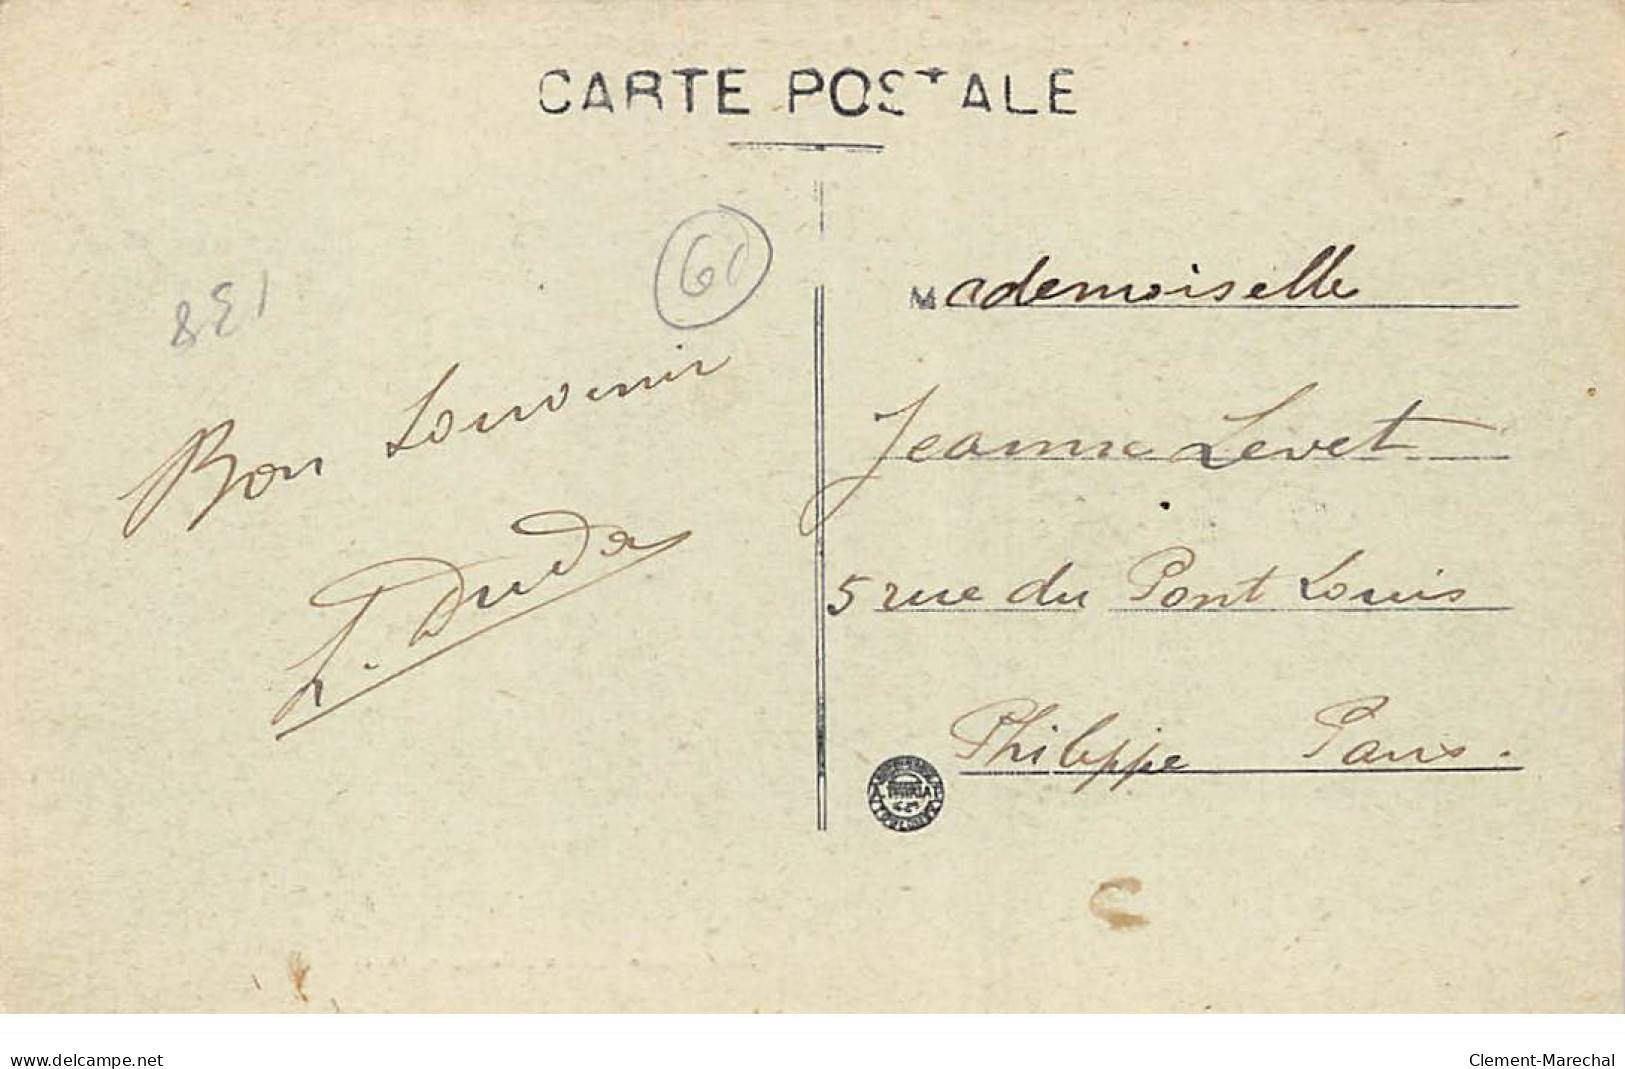 CARTE POSTALE
61
138
Bon Souvenir
Mademoiselle
Jeanne Levet
5 rue du Pont Louis
Philippe Paris.
www.delcampe.net
Clement-Marechal